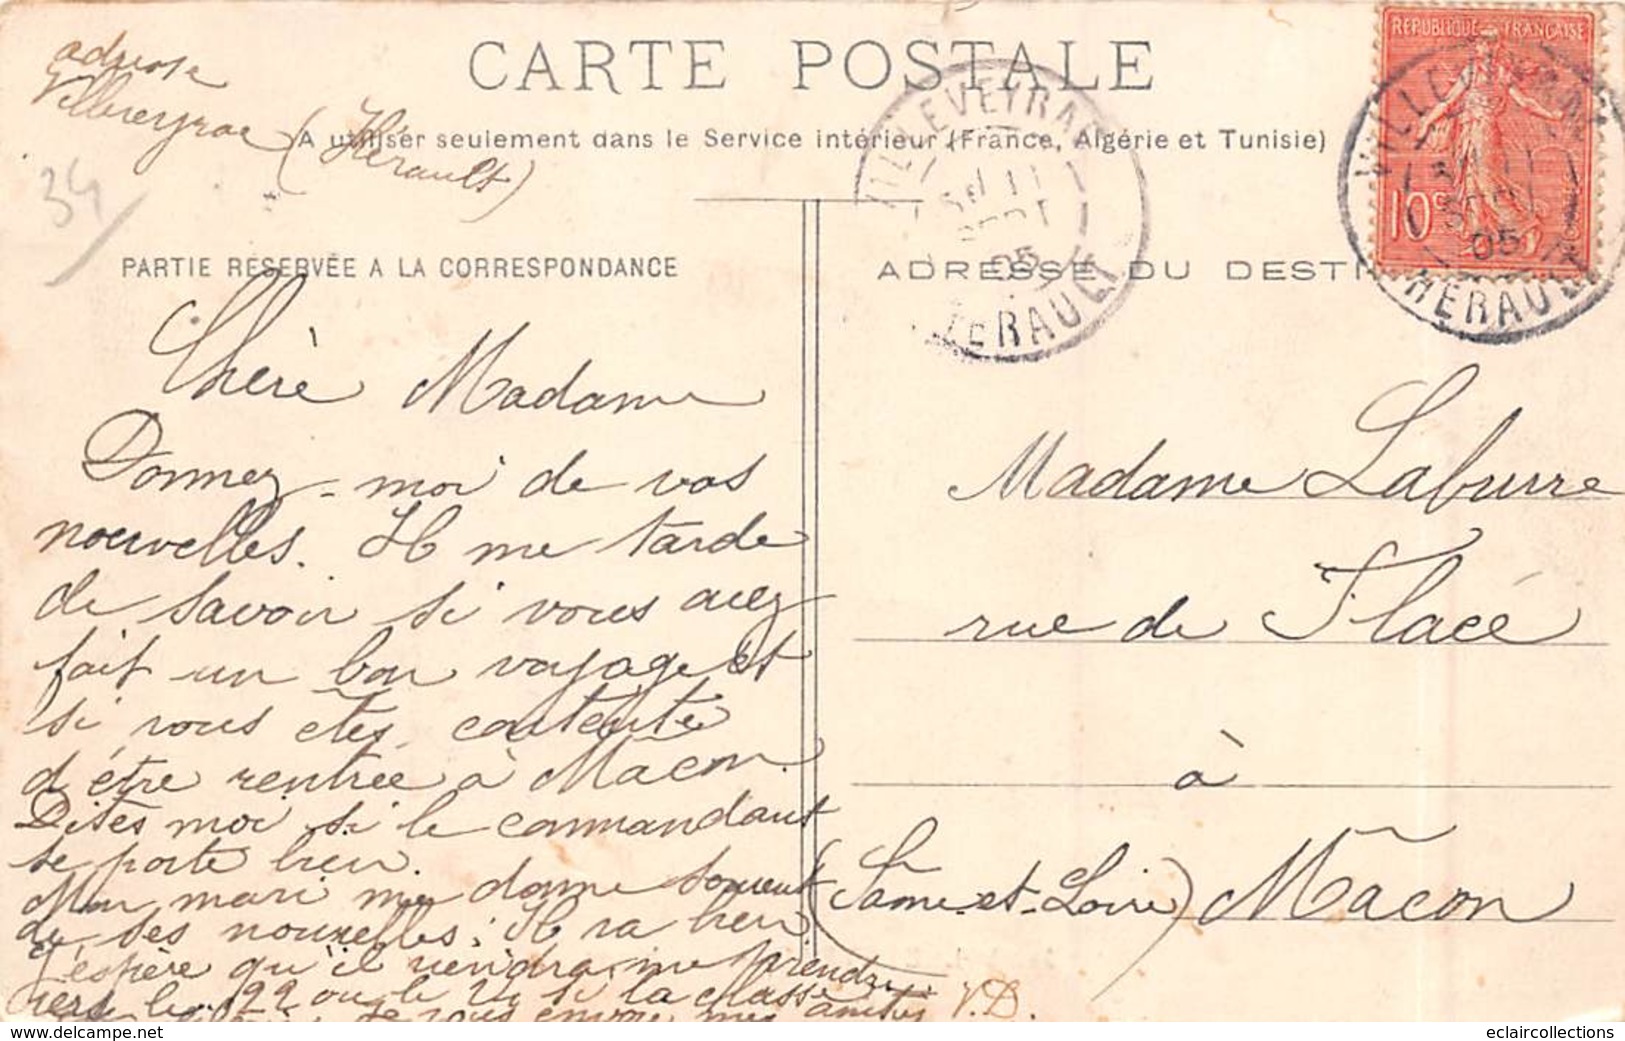 adresse
Villeveyrac (Hérault)
34
CARTE POSTALE
A utiliser seulement dans le Service intérieur (France, Algérie et Tunisie)
REPUBLIQUE FRANÇAISE
10c
VILLEVEYRAC
11
SEPT
05
HERAULT
VILLEVEYRAC
11
SEPT
05
HERAULT
PARTIE RESERVÉE A LA CORRESPONDANCE
ADRESSE DU DESTI
Chère Madame
Donnez-moi de vos
nouvelles. Il me tarde
de savoir si vous avez
fait un bon voyage et
si vous êtes contente
d'être rentrée à Mâcon.
Dites moi si le commandant
se porte bien.
Mon mari me donne souvent
de ses nouvelles; Il va bien
J'espère qu'il viendra me prendre
vers le 22 ou le 24 si la classe
Je vous envoie mes amitiés V.D.
Madame Laburre
rue de Flacé
à
Mâcon
(Saône-et-Loire)
delcampe.net
eclaircollections